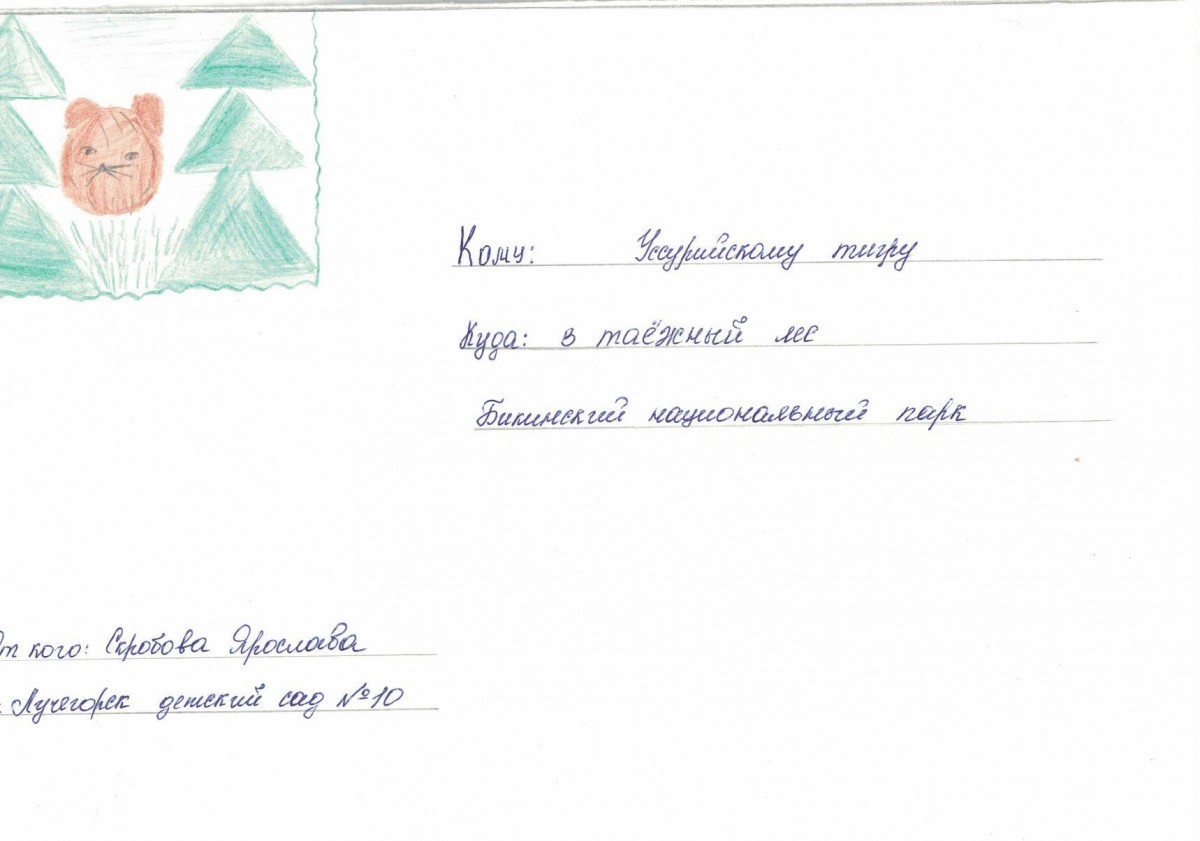 Кому: Уссурийскому тигру
Куда: в таёжный лес
Бикинский национальный парк
От кого: Скробова Ярослава
Лучегорск детский сад №10